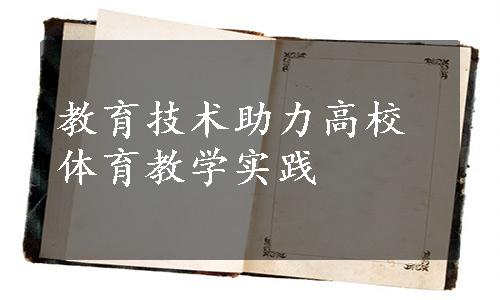 教育技术助力高校
体育教学实践